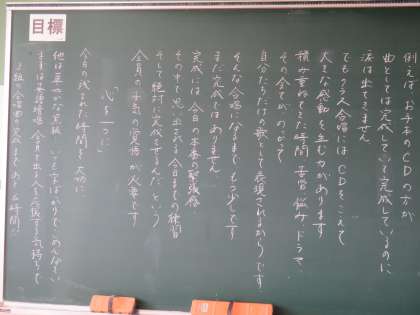 目標
例えば、お手本のCDの方が
曲としては完成していて完成しているのに
涙は出てきません
でもクラス合唱にはCDをこえて
大きな感動を生む力があります
積み重ねてきた時間 苦労 悩み ドラマ、
その全てが のっかって
自分たちだけの歌として表現されるからです
そんな合唱になるまで もう少しです
まだ完全ではありません
完成には 今日の本番の緊張感
その中で思い出される今日までの練習
そして絶対に完成させるんだという
全員の「本気の覚悟」が必要です
"心を一つに"
今日の残された時間を大切に
他は夏やかな黒板
ごめんなさい
全員で出る人を応援する気持ちで
組の合唱曲の完成まで あと 時間!!